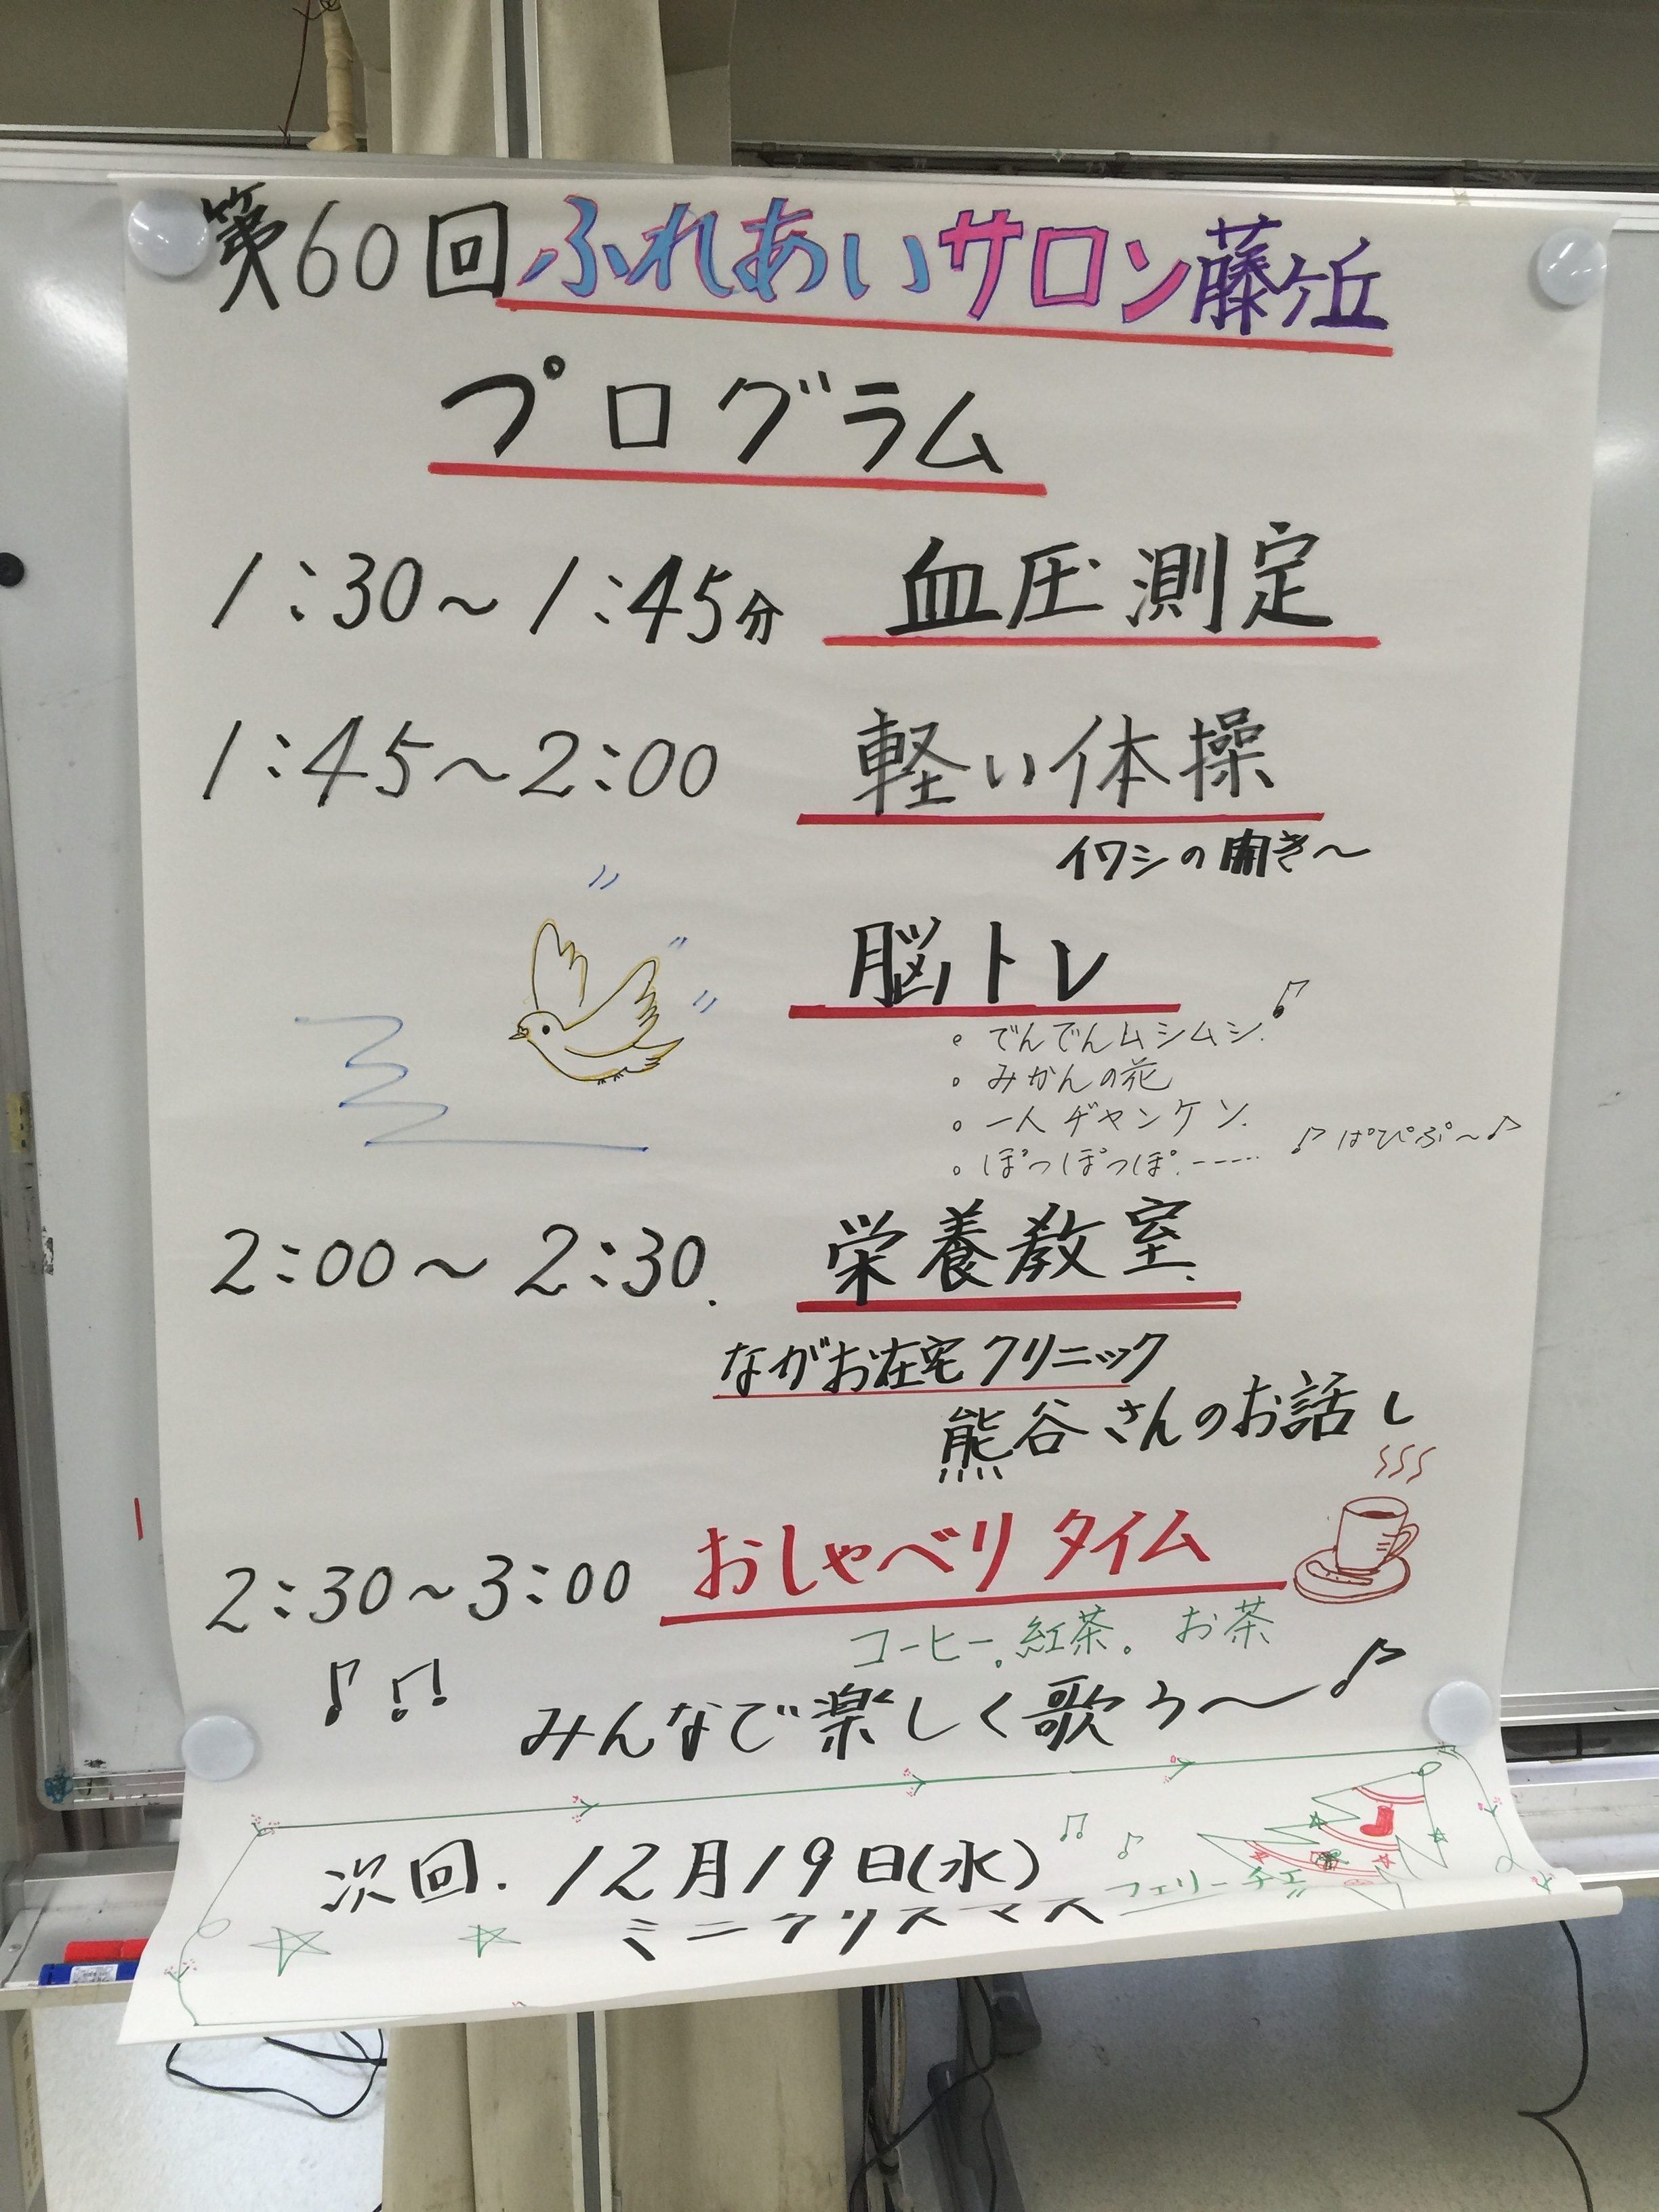 第60回ふれあいサロン藤ヶ丘
プログラム
1:30～1:45分 血圧測定
1:45～2:00 軽い体操
イワシの開き～
脳トレ
。でんでんムシムシ.♪
。みかんの花
。一人ヂャンケン.
。ぽっぽっぽ.----- ♪ぱぴぷ～♪
2:00～2:30. 栄養教室.
ながお在宅クリニック
熊谷さんのお話し
2:30～3:00 おしゃべりタイム
コーヒー。紅茶。お茶
♪♫ みんなで楽しく歌う～♪
次回. 12月19日(水) ♫ ♪
ミニクリスマス フェリーチェ